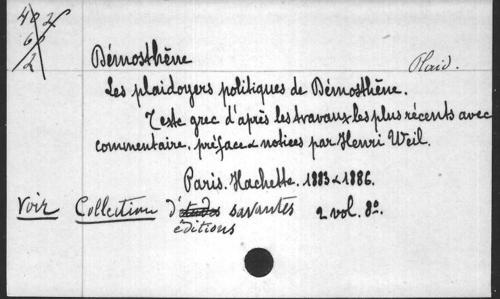 402
6
2
Démosthène
Plaid.
Les plaidoyers politiques de Démosthène.
Texte grec d'après les travaux les plus récents avec
commentaire, préface & notices par Henri Weil.
Paris. Hachette. 1883 & 1886.
Voir Collection d'études savantes 2 vol. 8º.
éditions